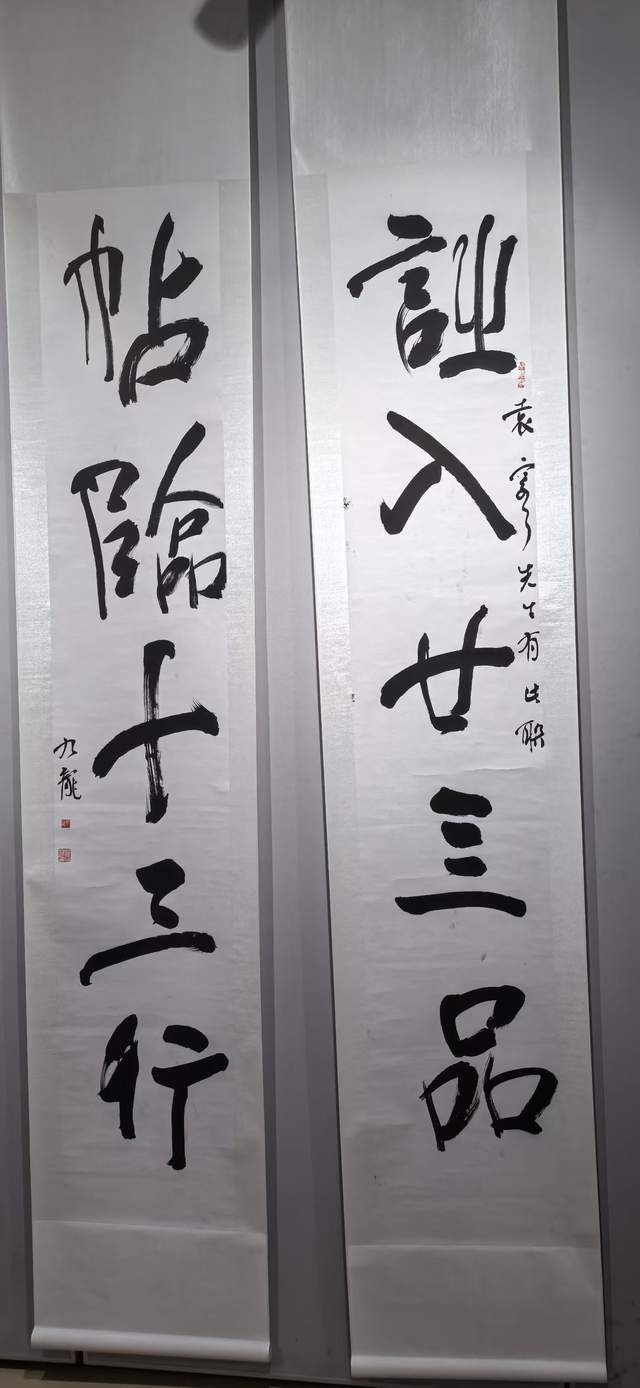 詩入廿三品
袁寒云先生有此联
帖臨十三行
九龍